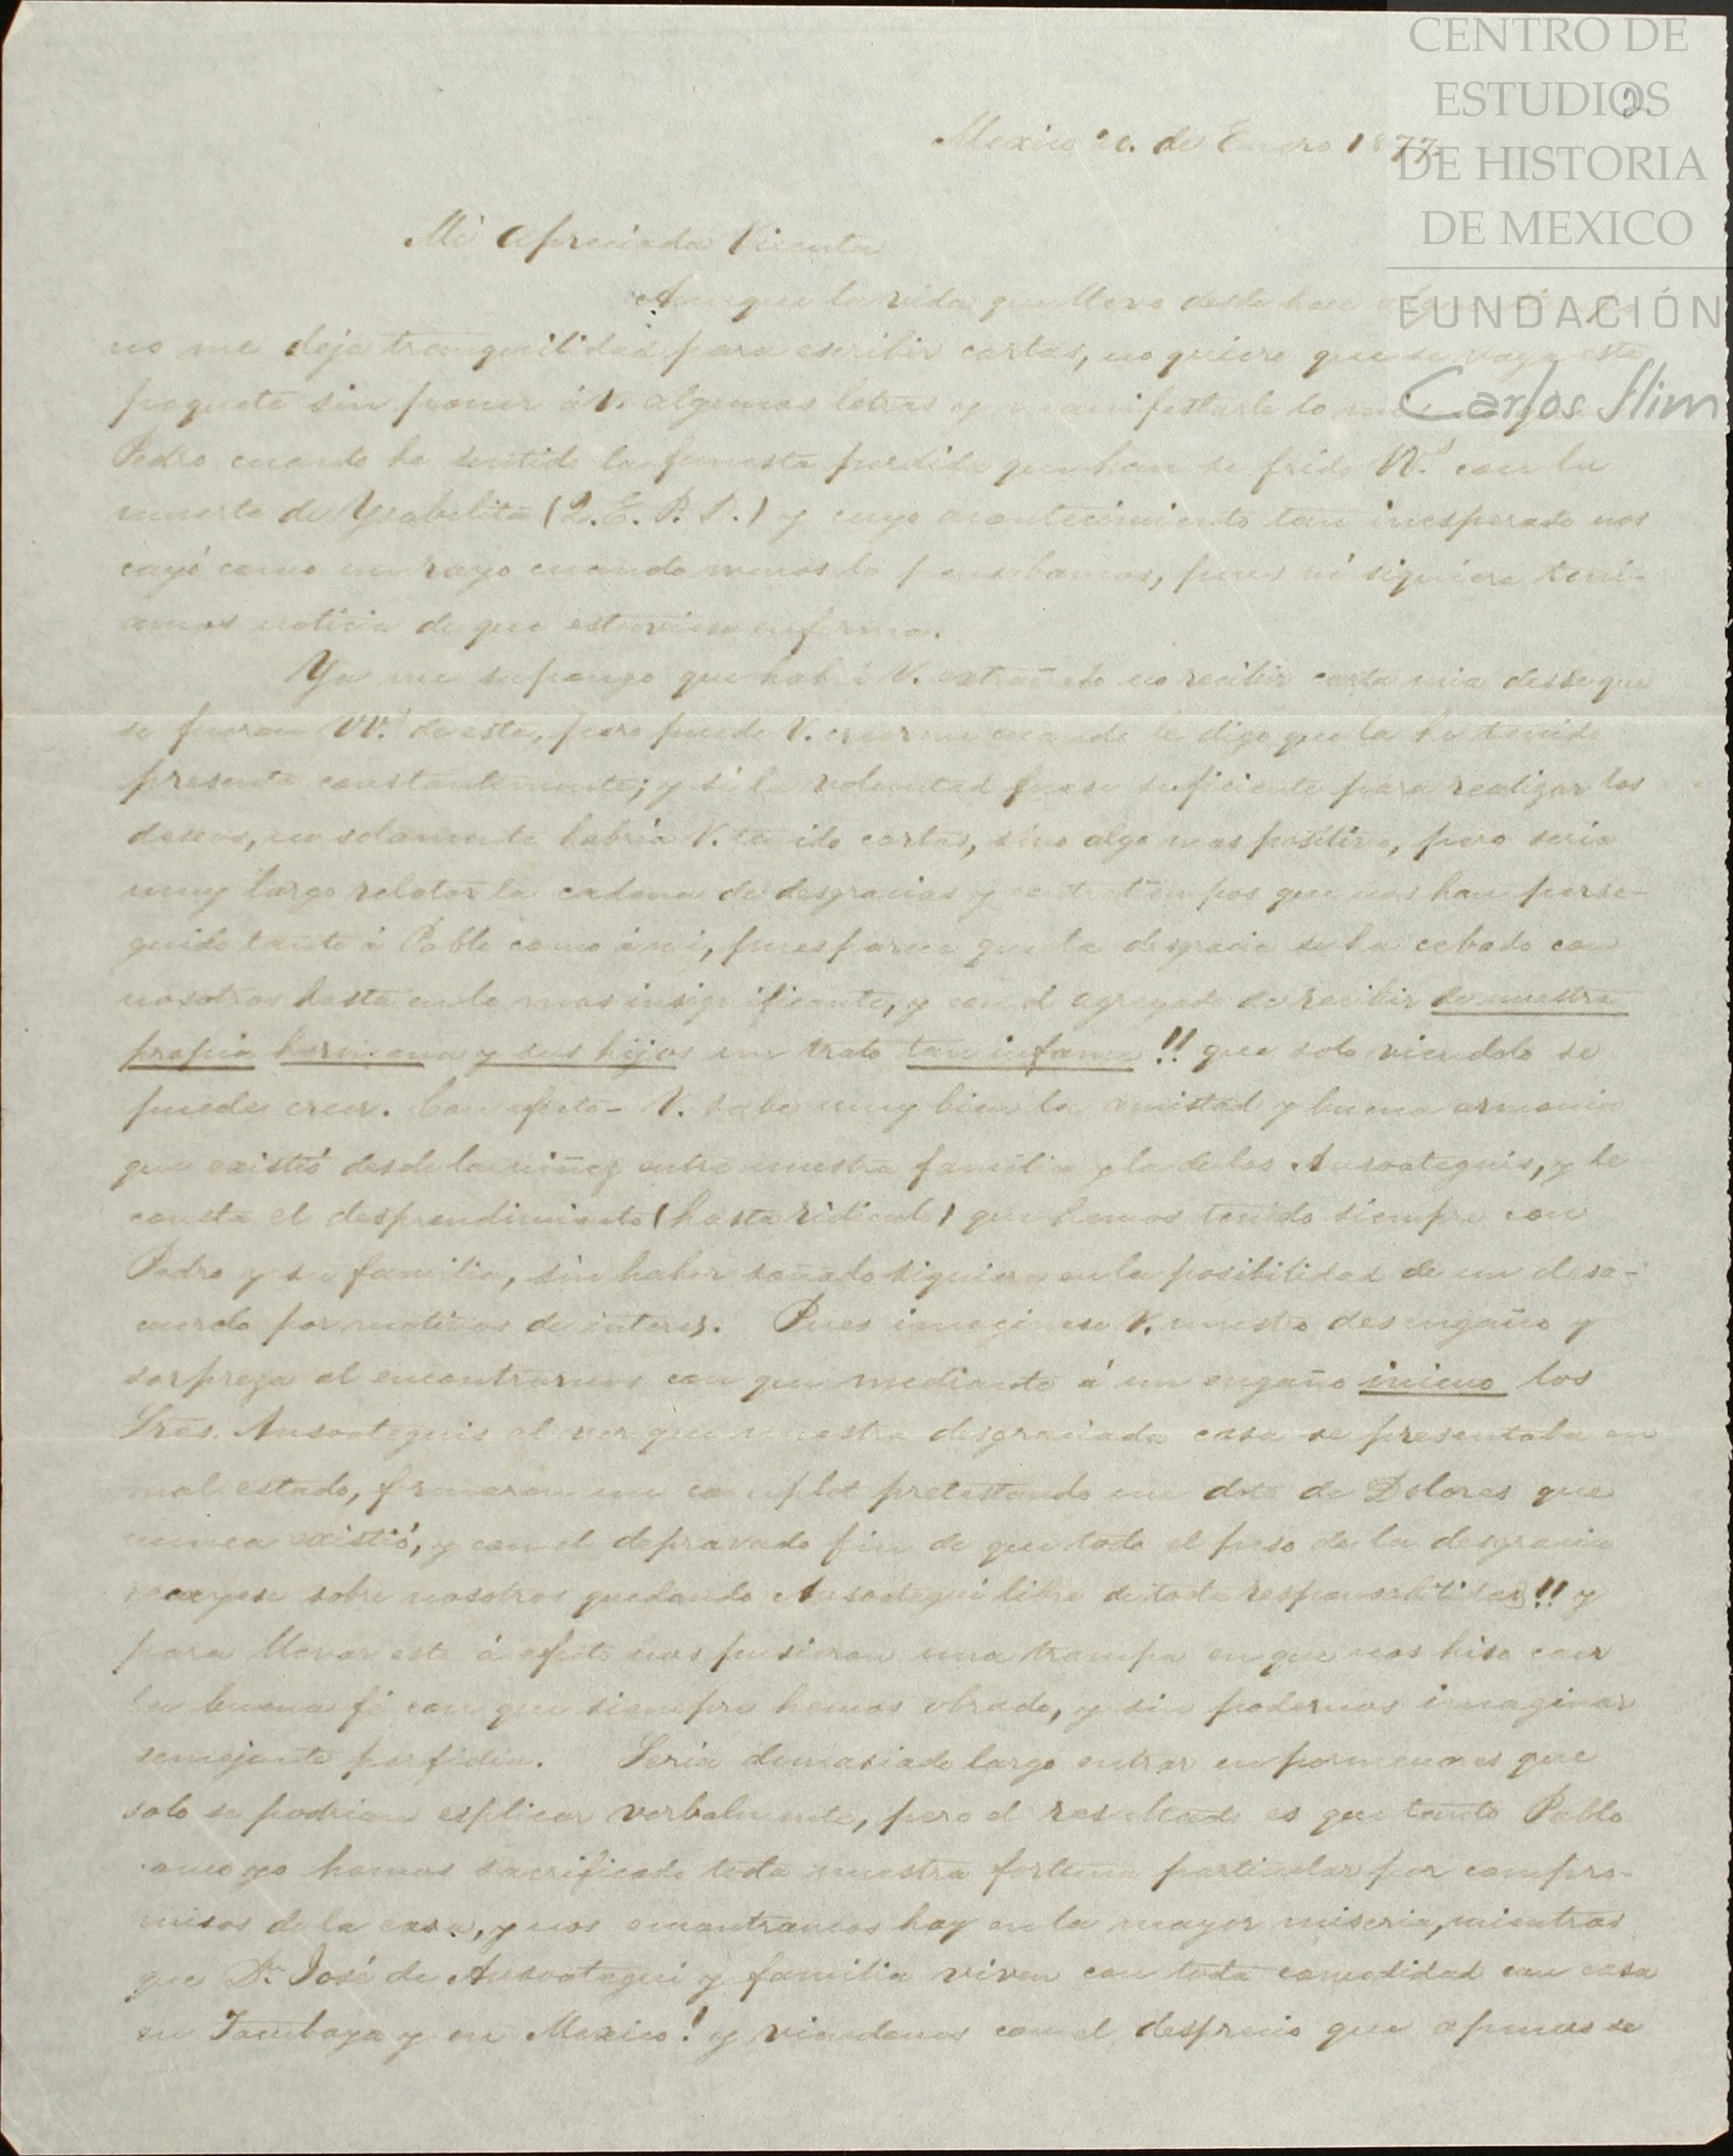 CENTRO DE
ESTUDIOS
DE HISTORIA
DE MEXICO
FUNDACIÓN
Carlos Slim
2
Mexico 20. de Enero 1877.
Mi apreciada Vicenta
Aunque la vida que llevo desde hace
no me deja tranquilidad para escribir cartas, no quiero que se vaya este
paquete sin poner á V. algunas letras y manifestarle lo mismo que
Pedro cuando ha sentido la funesta perdida que han sufrido VV.s con la
muerte de Ysabelita (Q.E.P.D.) y cuyo acontecimiento tan inesperado nos
cayó como un rayo cuando menos lo pensabamos, pues ni siquiera tení-
amos noticia de que estuviese enferma.
Ya me supongo que habrá V. extrañado no recibir carta mia desde que
se fueron VV.s de esta, pero puede V. creerme cuando le digo que la he tenido
presente constantemente; y si la voluntad fuese suficiente para realizar los
deseos, no solamente habria V. tenido cartas, sino algo mas positivo, pero seria
muy largo relatar la cadena de desgracias y contratiempos que nos han perse-
guido tanto á Pablo como á mi, pues parece que la desgracia se ha cebado con
nosotros hasta en lo mas insignificante, y con el agregado de recibir de nuestra
propia hermana y sus hijos un trato tan infame!! que solo viendolo se
puede creer. Con efecto - V. sabe muy bien la amistad y buena armonia
que existió desde la niñez entre nuestra familia y la de los Ansoateguis, y le
consta el desprendimiento (hasta ridiculo) que hemos tenido siempre con
Pedro y su familia, sin haber soñado siquiera en la posibilidad de un desa-
cuerdo por motivos de interes. Pues imaginese V. nuestro desengaño y
sorpreza al encontrarnos con que mediante á un engaño inicuo los
Sres. Ansoateguis al ver que nuestra desgraciada casa se presentaba en
mal estado, formaron un complot pretestando un dote de Dolores que
nunca existió, y con el depravado fin de que todo el peso de la desgracia
recayese sobre nosotros quedando Ansoategui libre de toda responsabilidad!! y
para llevar esto á efecto nos pusieron una trampa en que nos hiso caer
la buena fé con que siempre hemos obrado, y sin podernos imaginar
semejante perfidia. Seria demasiado largo entrar en pormenores que
solo se podrian esplicar verbalmente, pero el resultado es que tanto Pablo
como yo hemos sacrificado toda nuestra fortuna particular por compro-
misos de la casa, y nos encontramos hoy en la mayor miseria, mientras
que Dn. José de Ansoategui y familia viven con toda comodidad con casa
en Tacubaya y en Mexico! y viendonos con el desprecio que apenas se